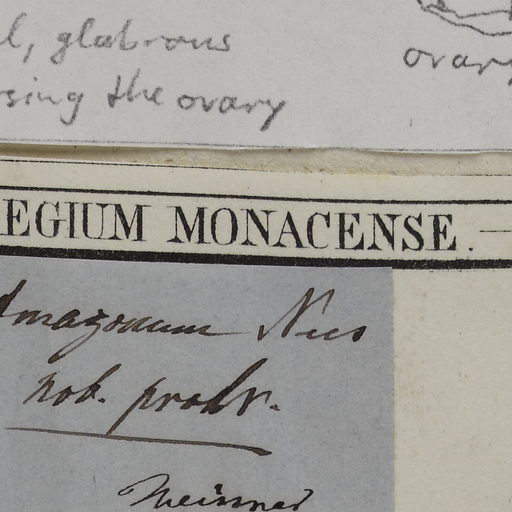 l, glabrous
sing the ovary
ovary
EGIUM MONACENSE.
Amazonum Nees
nob. prodr.
Meissner